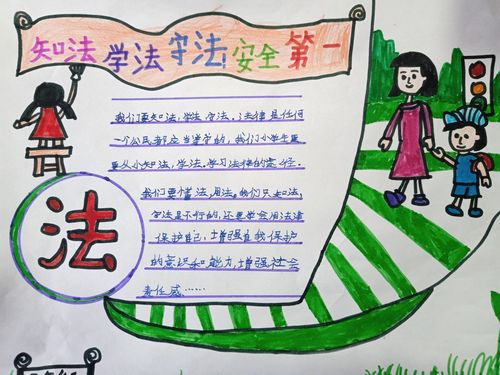 知法 学法 守法 安全 第一
我们要知法,学法,守法,法律是任何
一个公民都应当遵守的,我们小学生更
要从小知法,学法,学习法律的途径。
我们要懂法,用法。我们只知法,
守法是不行的,还要学会用法律
保护自己,增强自我保护
的意识和能力,增强社会
责任感……
法